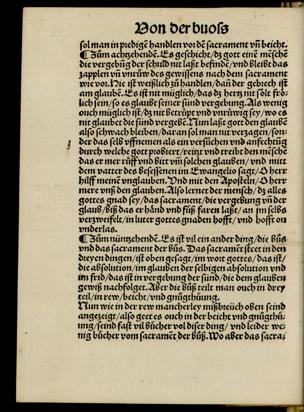 Von der buoß
sol man in predigē handlen vor dē sacrament vñ beicht.
¶ Zům achtzehendē. Es geschicht/ dz gott eine mēschē
die vergebūg der schuld nit laßt befindē/ vnd bleibt das
zapplen vñ vnrůw des gewissens nach dem sacrament
wie vor. Hie ist weißlich zů handlen/ dañ der gebrech ist
am glaubē. Es ist nit müglich/ das dz hertz nit solt frö
lich sein/ so es glaubt seiner sünd vergebung. Als wenig
ouch müglich ist/ dz nit betrüpt vnd vnrüwig sey/ wo es
nit glaubet die sünd vergebē. Nun laßt gott den glaubē
also schwach bleiben/ daran sol man nit verzagen/ son
der das selb vffnemen als ein versůchen vnd anfechtūg
durch welche gott probiert/ reitzt vnd treibt den mēschē
das er mer rüff vnd bitt vm̄ solchen glauben/ vnd mitt
dem vatter des besessenen im Ewangelio sag/ O herr
hilff meinē vnglauben. Vnd mit den Apostoln/ O herr
mere vns den glauben. Also lernet der mensch/ dz alles
gottes gnad sey/ das sacrament/ die vergebung vñ der
glaub/ biß das er händ vnd füß faren laßt/ an jm selbs
verzweifelt/ in luter gottes gnaden hofft/ vnd hofft on
vnderlas.
¶ Zům nüntzehendē. Es ist vil ein ander ding/ die bůs
vnd das sacrament der bůs. Das sacramēt steet in den
dreyen dingen/ ist oben gesagt/ im wort gottes/ das ist/
die absolution/ im glauben der selbigen absolution vnd
im frid/ das ist in vergebung der sünd/ die dem glauben
gewiß nachfolget. Aber die bůß teilt man ouch in drey
teil/ in rew/ beicht/ vnd gnůgthůung.
Nun wie in der rew mancherley mißbreüch oben seind
angezeigt/ also geet es ouch in der beicht vnd gnůgthů
ung/ seind fast vil bücher vol diser ding/ vnd leider we
nig bücher vom sacramēt der bůß. Wo aber das sacra/